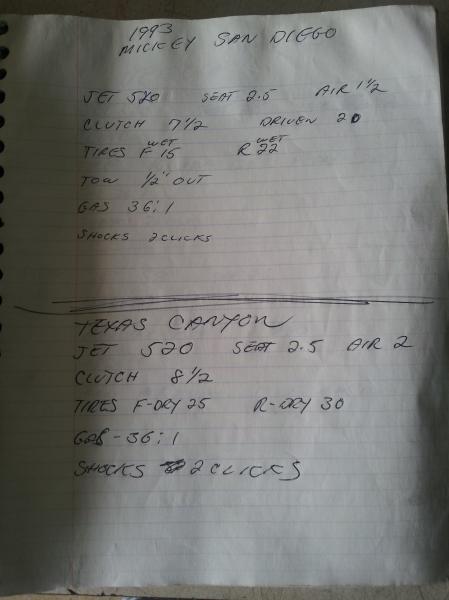 1993
MICKEY SAN DIEGO
JET 520 SEAT 2.5 AIR 1 1/2
CLUTCH 7 1/2 DRIVEN 20
WET WET
TIRES F 15 R 22
TOW 1/2" OUT
GAS 36:1
SHOCKS 2 CLICKS
TEXAS CANYON
JET 520 SEAT 2.5 AIR 2
CLUTCH 8 1/2
TIRES F-DRY 25 R-DRY 30
GAS - 36:1
SHOCKS 2 CLICKS